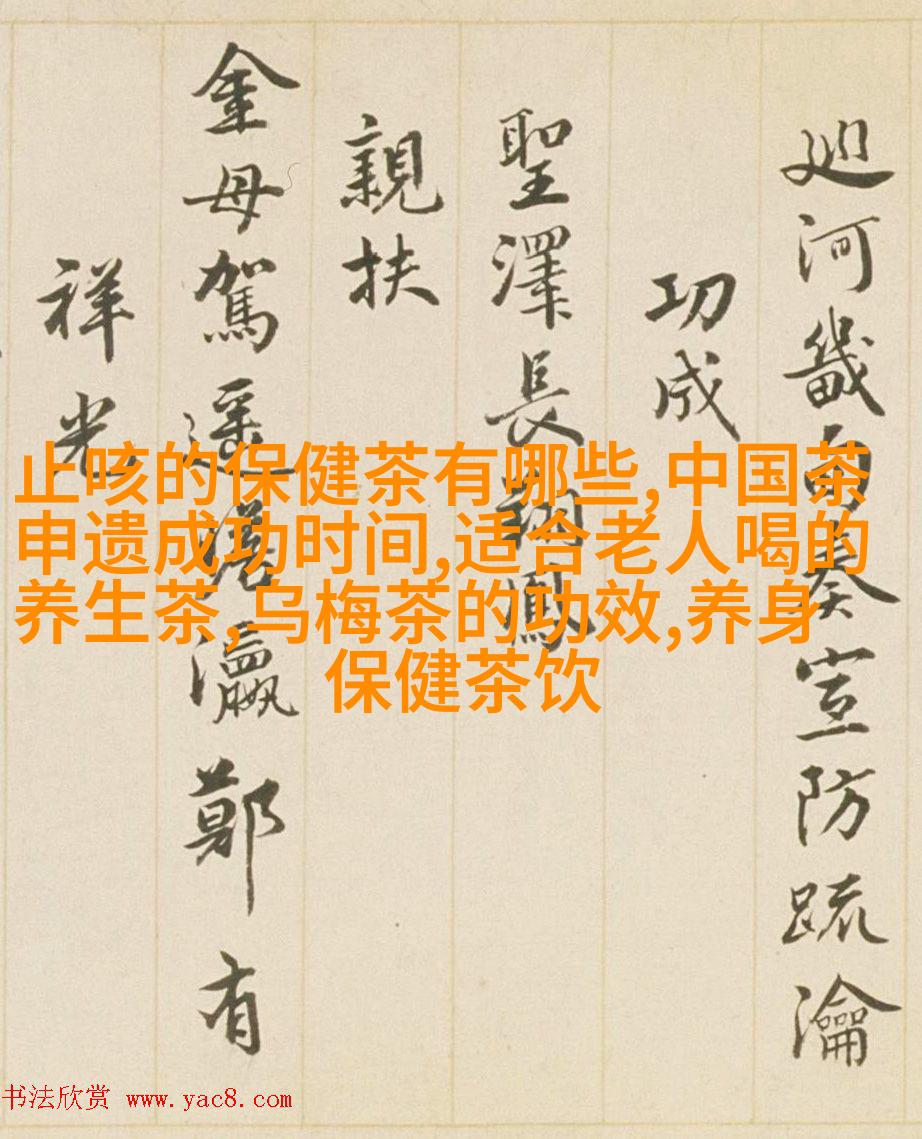 廵河畿甸奏宣防疏瀹
功成
聖澤長鳳
親扶
金母駕遥瀛鄭有
祥光
止咳的保健茶有哪些,中国茶
申遗成功时间,适合老人喝的
养生茶,乌梅茶的功效,养身
保健茶饮
书法欣赏 www.yac8.com